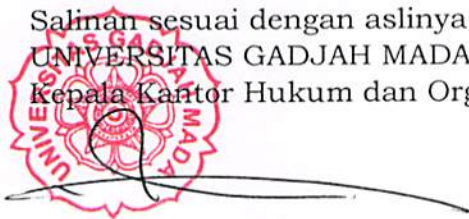 Salinan sesuai dengan aslinya
UNIVERSITAS GADJAH MADA
Kepala Kantor Hukum dan Org
UNIVERSITAS GADJAH MADA